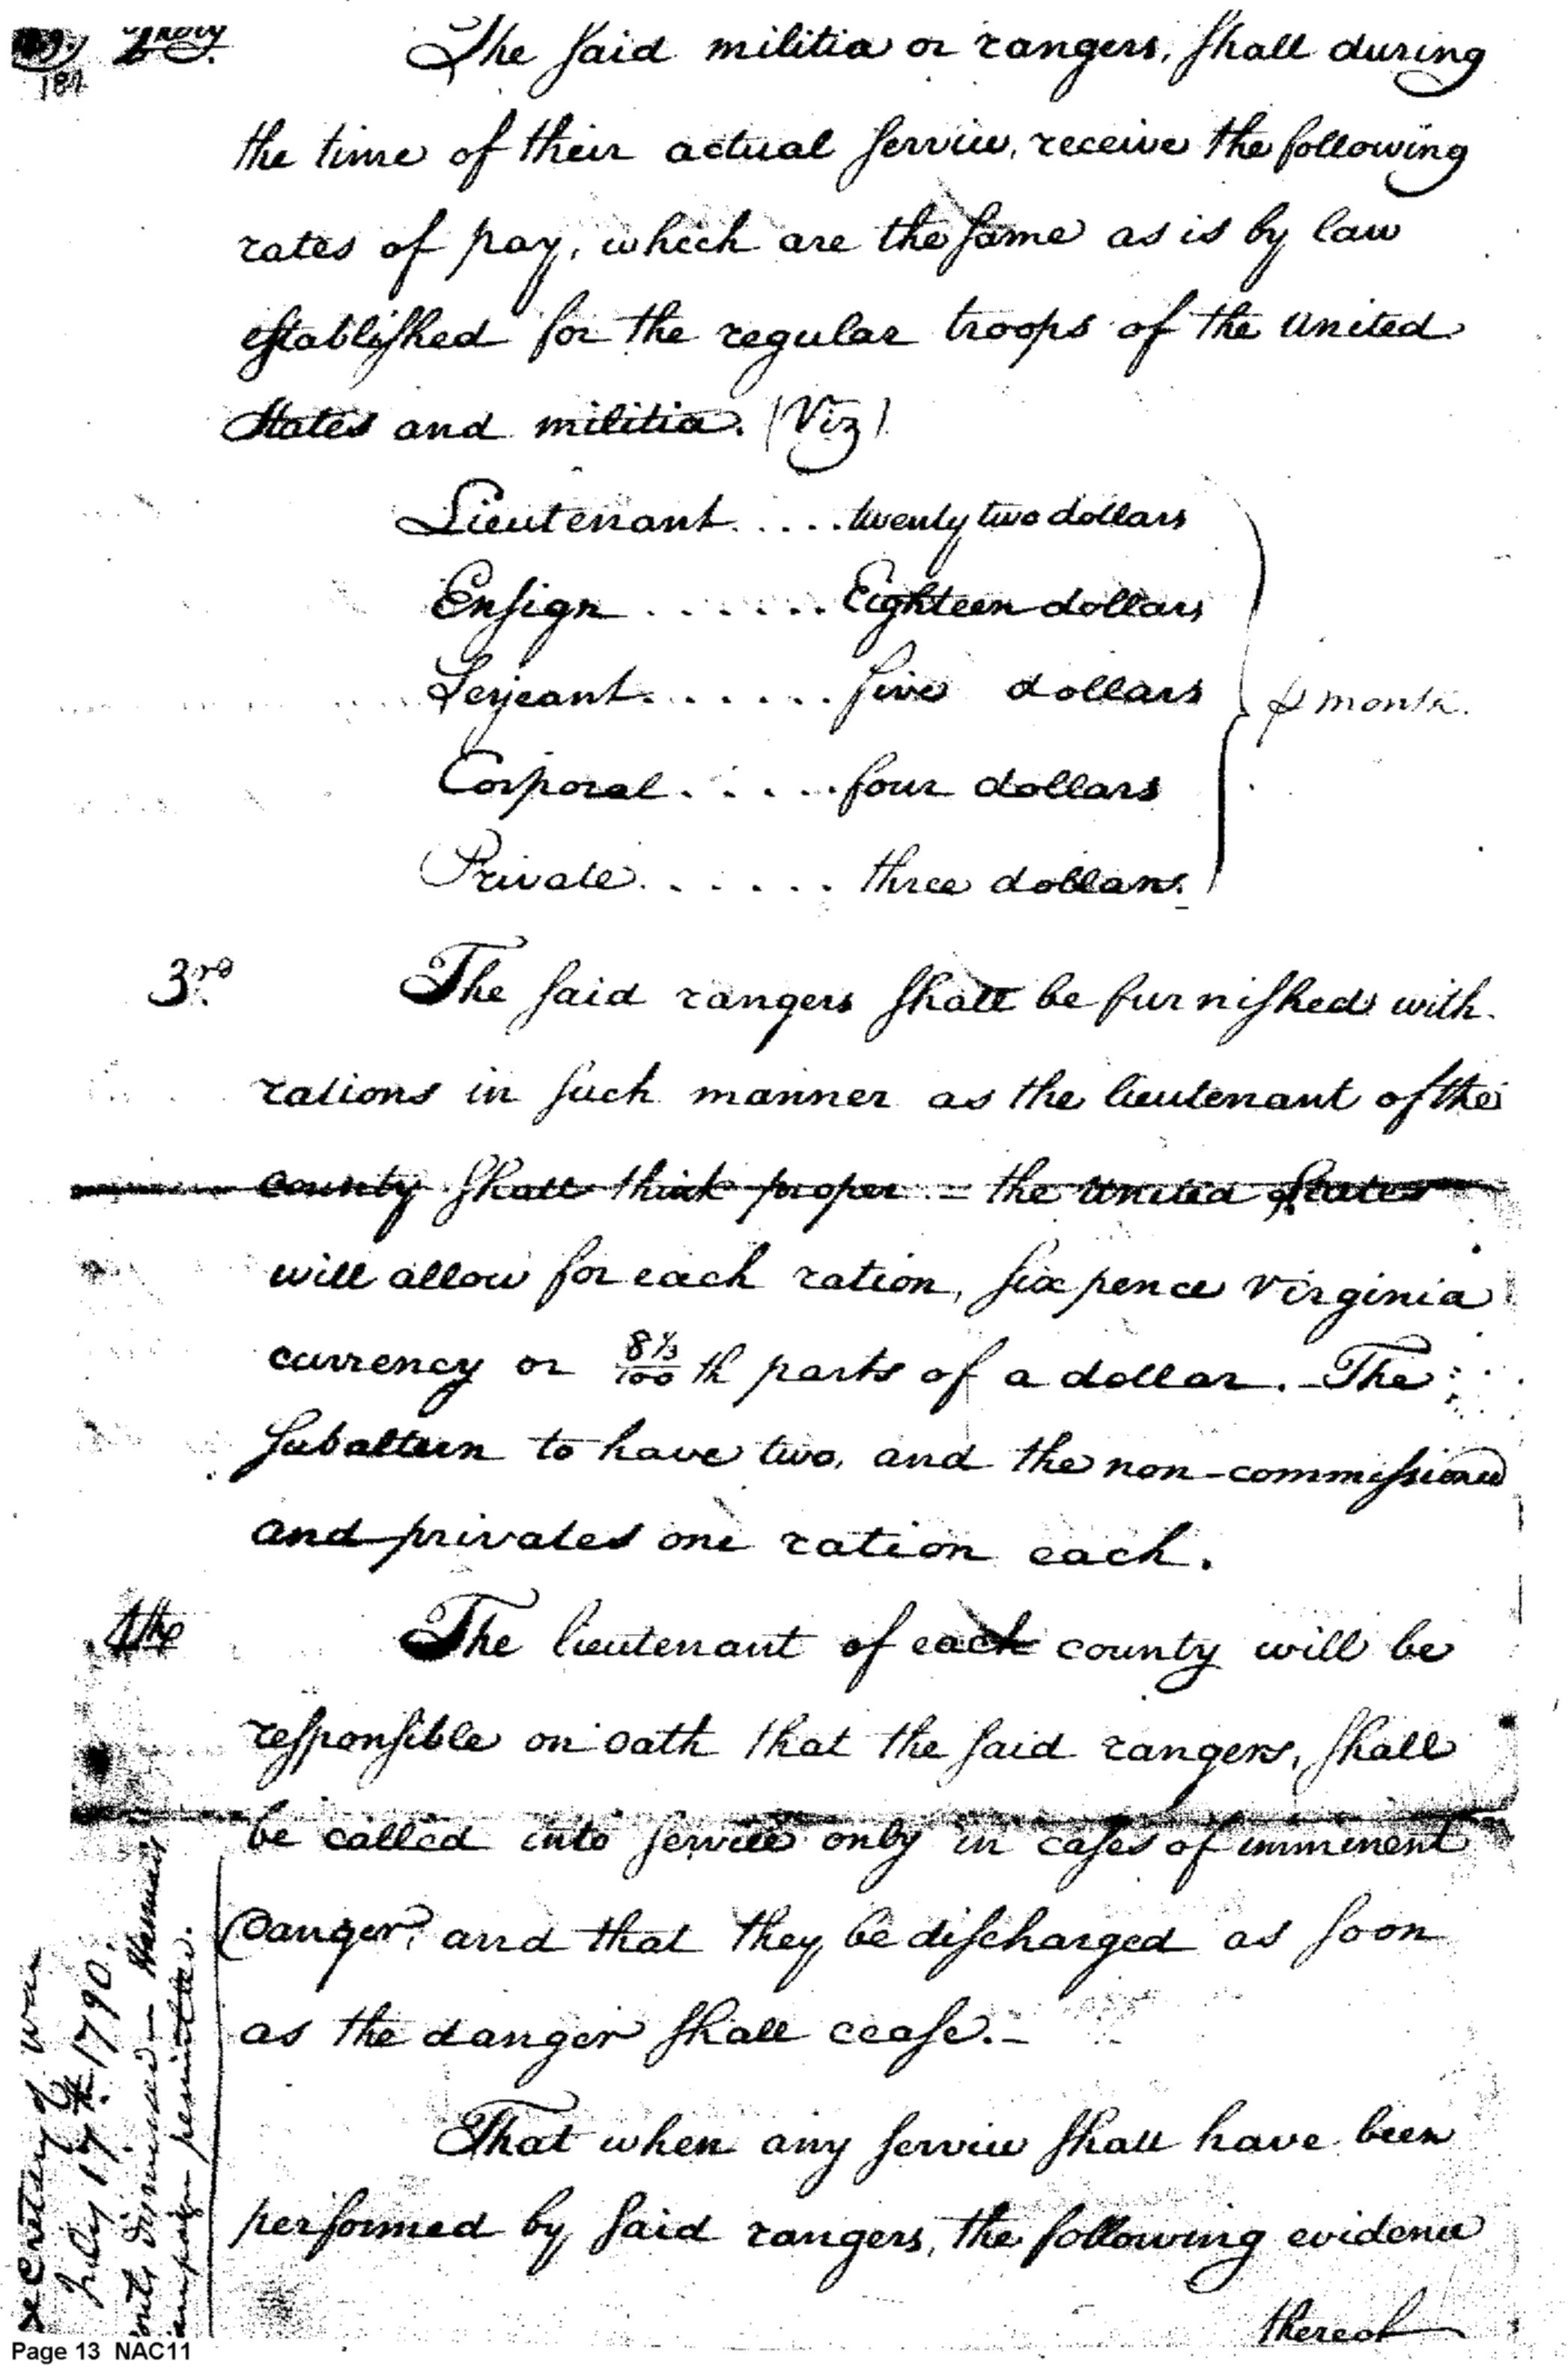 2ndly. The said militia or rangers, shall during
181
the time of their actual service, receive the following
rates of pay, which are the same as is by law
established for the regular troops of the United
States and militia. (Viz)
Lieutenant ..... twenty two dollars
Ensign ....... Eighteen dollars
Serjeant ....... five dollars
⅌ month.
Corporal ..... four dollars
Private ...... three dollars.
3rd. The said rangers shall be furnished with
rations in such manner as the lieutenant of the
county shall think proper = the United States
will allow for each ration, six pence virginia
currency or 8⅓/100 th parts of a dollar. – The
Subaltern to have two, and the non-commissioned
and privates one ration each.
4th. The lieutenant of each county will be
responsible on oath that the said rangers, shall
be called into service only in cases of imminent
Danger, and that they be discharged as soon
as the danger shall cease. –
That when any service shall have been
performed by said rangers, the following evidence
thereof
ecretary of war
July 17th 1790.
Page 13 NAC11